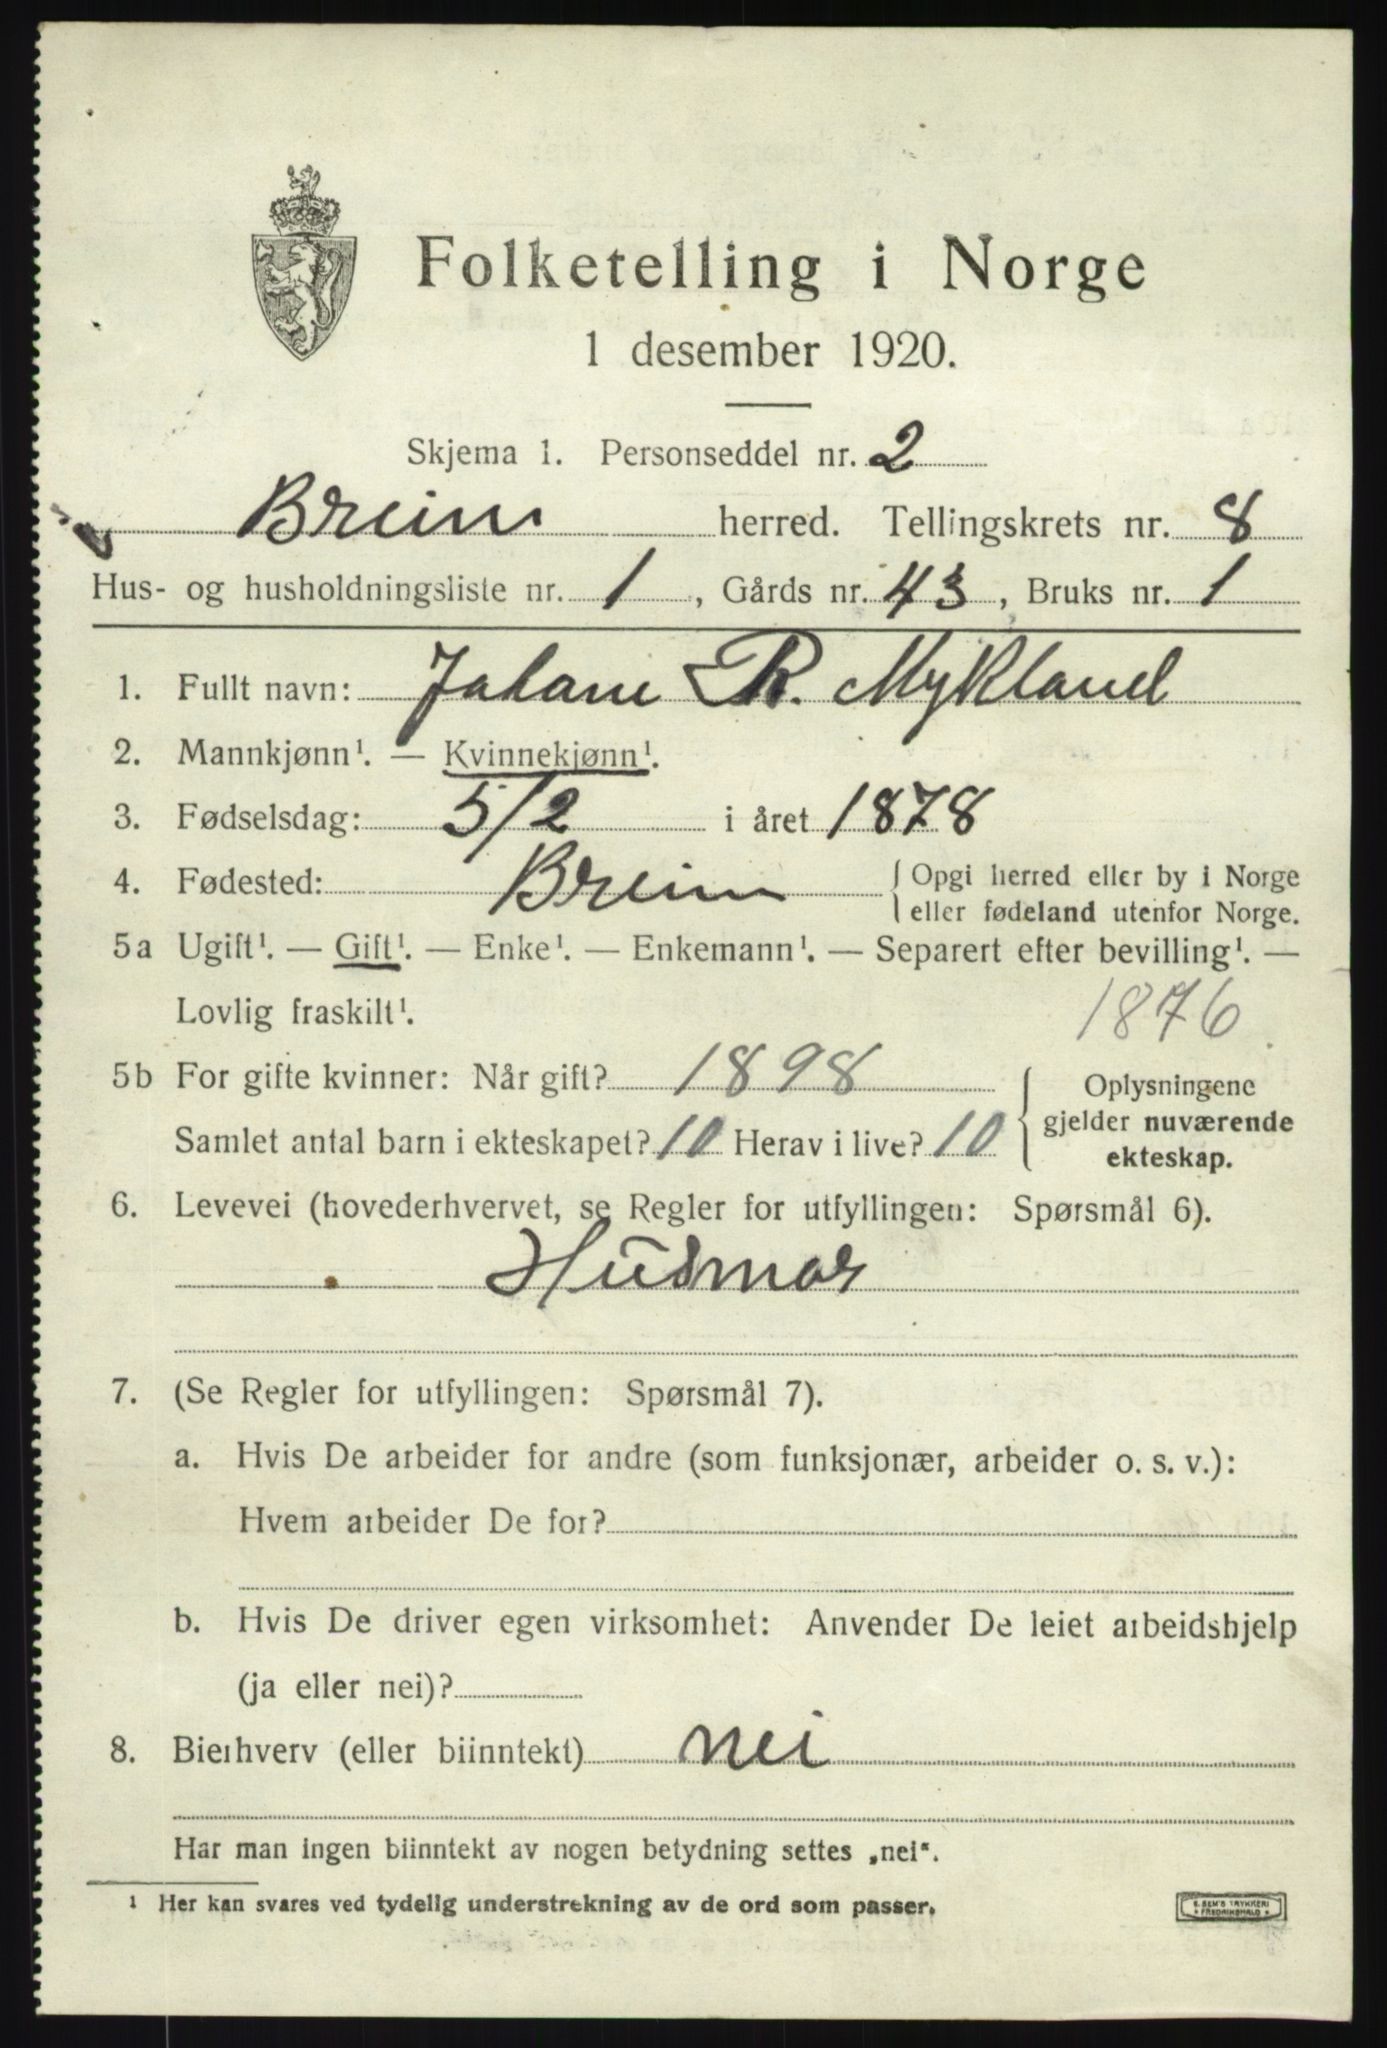 Folketelling i Norge
1 desember 1920.
Skjema 1. Personseddel nr. 2
Breim herred. Tellingskrets nr. 8
Hus- og husholdningsliste nr. 1, Gårds nr. 43, Bruks nr. 1
1. Fullt navn: Johane R. Mykland
2. Mannkjønn¹. — Kvinnekjønn¹.
3. Fødselsdag: 5/2 i året 1878
4. Fødested: Breim { Opgi herred eller by i Norge
eller fødeland utenfor Norge.
5a Ugift¹. — Gift¹. — Enke¹. — Enkemann¹. — Separert efter bevilling¹. —
Lovlig fraskilt¹.
1876
5b For gifte kvinner: Når gift? 1898
Samlet antal barn i ekteskapet? 10 Herav i live? 10
{ Oplysningene
gjelder nuværende
ekteskap.
6. Levevei (hovederhvervet, se Regler for utfyllingen: Spørsmål 6).
Husmor
7. (Se Regler for utfyllingen: Spørsmål 7).
a. Hvis De arbeider for andre (som funksjonær, arbeider o. s. v.):
Hvem arbeider De for?
b. Hvis De driver egen virksomhet: Anvender De leiet arbeidshjelp
(ja eller nei)?
8. Bierhverv (eller biinntekt) nei
Har man ingen biinntekt av nogen betydning settes „nei“.
¹ Her kan svares ved tydelig understrekning av de ord som passer.
E. SEM'S TRYKKERI
* FREDRIKSHALD *